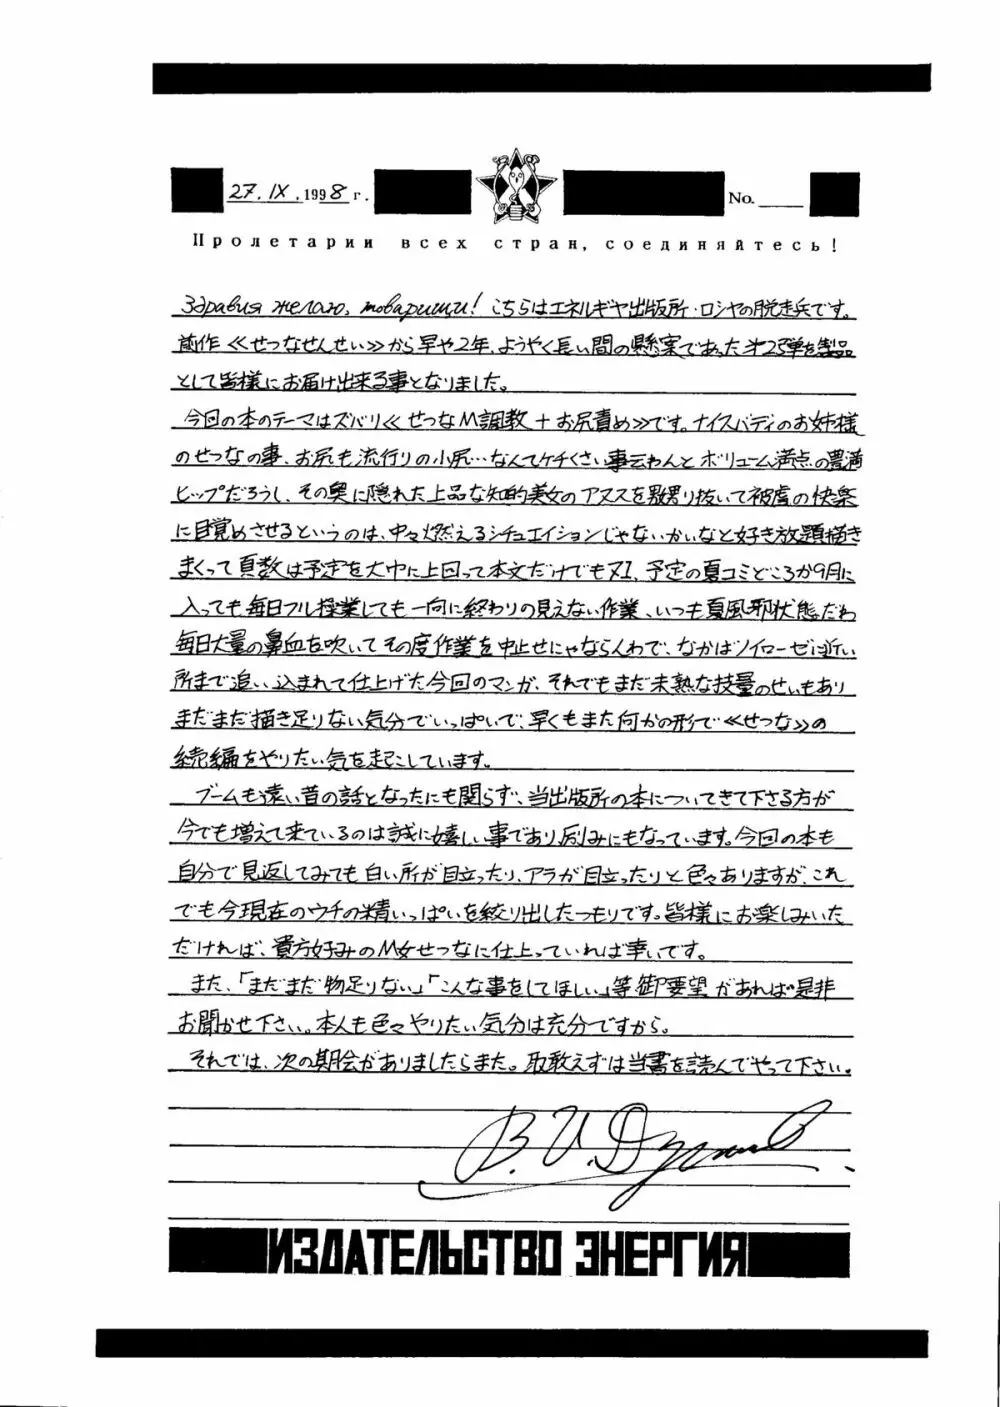 27.IX.1998г.
No.
Пролетарии всех стран, соединяйтесь!
Здравия желаю, товарищи! こちらはエネルギヤ出版所・ロシヤの脱走兵です。
前作≪せつなせんせい≫から早や2年、ようやく長い間の懸案であった才2弾を製品
として皆様にお届け出来る事となりました。
今回の本のテーマはズバリ≪せつなM調教+お尻責め≫です。ナイスバディのお姉様
のせつなの事、お尻も流行りの小尻…なんてケチくさい事云わんとボリューム満点の豊満
ヒップだろうし、その奥に隠れた上品な知的美女のアヌスを嬲り抜いて被虐の快楽
に目覚めさせるというのは、中々燃えるシチュエイションじゃないかいなと好き放題描き
まくって頁数は予定を大巾に上回って本文だけでも、予定の夏コミどころか9月に
入っても毎日フル操業しても一向に終わりの見えない作業、いつも夏風邪状態だわ
毎日大量の鼻血を吹いてその度作業を中止せにゃならんわで、なかばノイローゼに近い
所まで追い込まれて仕上げた今回のマンガ、それでもまだ未熟な技量のせいもあり
まだまだ描き足りない気分でいっぱいで、早くもまた何かの形で≪せつな≫の
続編をやりたい気を起こしています。
ブームも遠い昔の話となったにも関らず、当出版所の本についてきて下さる方が
今でも増えて来ているのは誠に嬉しい事であり励みにもなっています。今回の本も
自分で見返してみても白い所が目立ったり、アラが目立ったりと色々ありますが、これ
でも今現在のウチの精いっぱいを絞り出したつもりです。皆様にお楽しみいた
だければ、貴方好みのM女せつなに仕上っていれば幸いです。
また、「まだまだ物足りない」「こんな事をしてほしい」等御要望があれば是非
お聞かせ下さい。本人も色々やりたい気分は充分ですから。
それでは、次の期会がありましたらまた。取敢えずは当書を読んでやって下さい。
В.И.
ИЗДАТЕЛЬСТВО ЭНЕРГИЯ